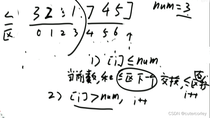 ≤区 [3 2 : 1) 7 4 5] num=3
0 1 2 3 4 5 6
1) [i]≤num
当前数和≤区下一个交换, ≤区
i++
2) [i]>num, i++